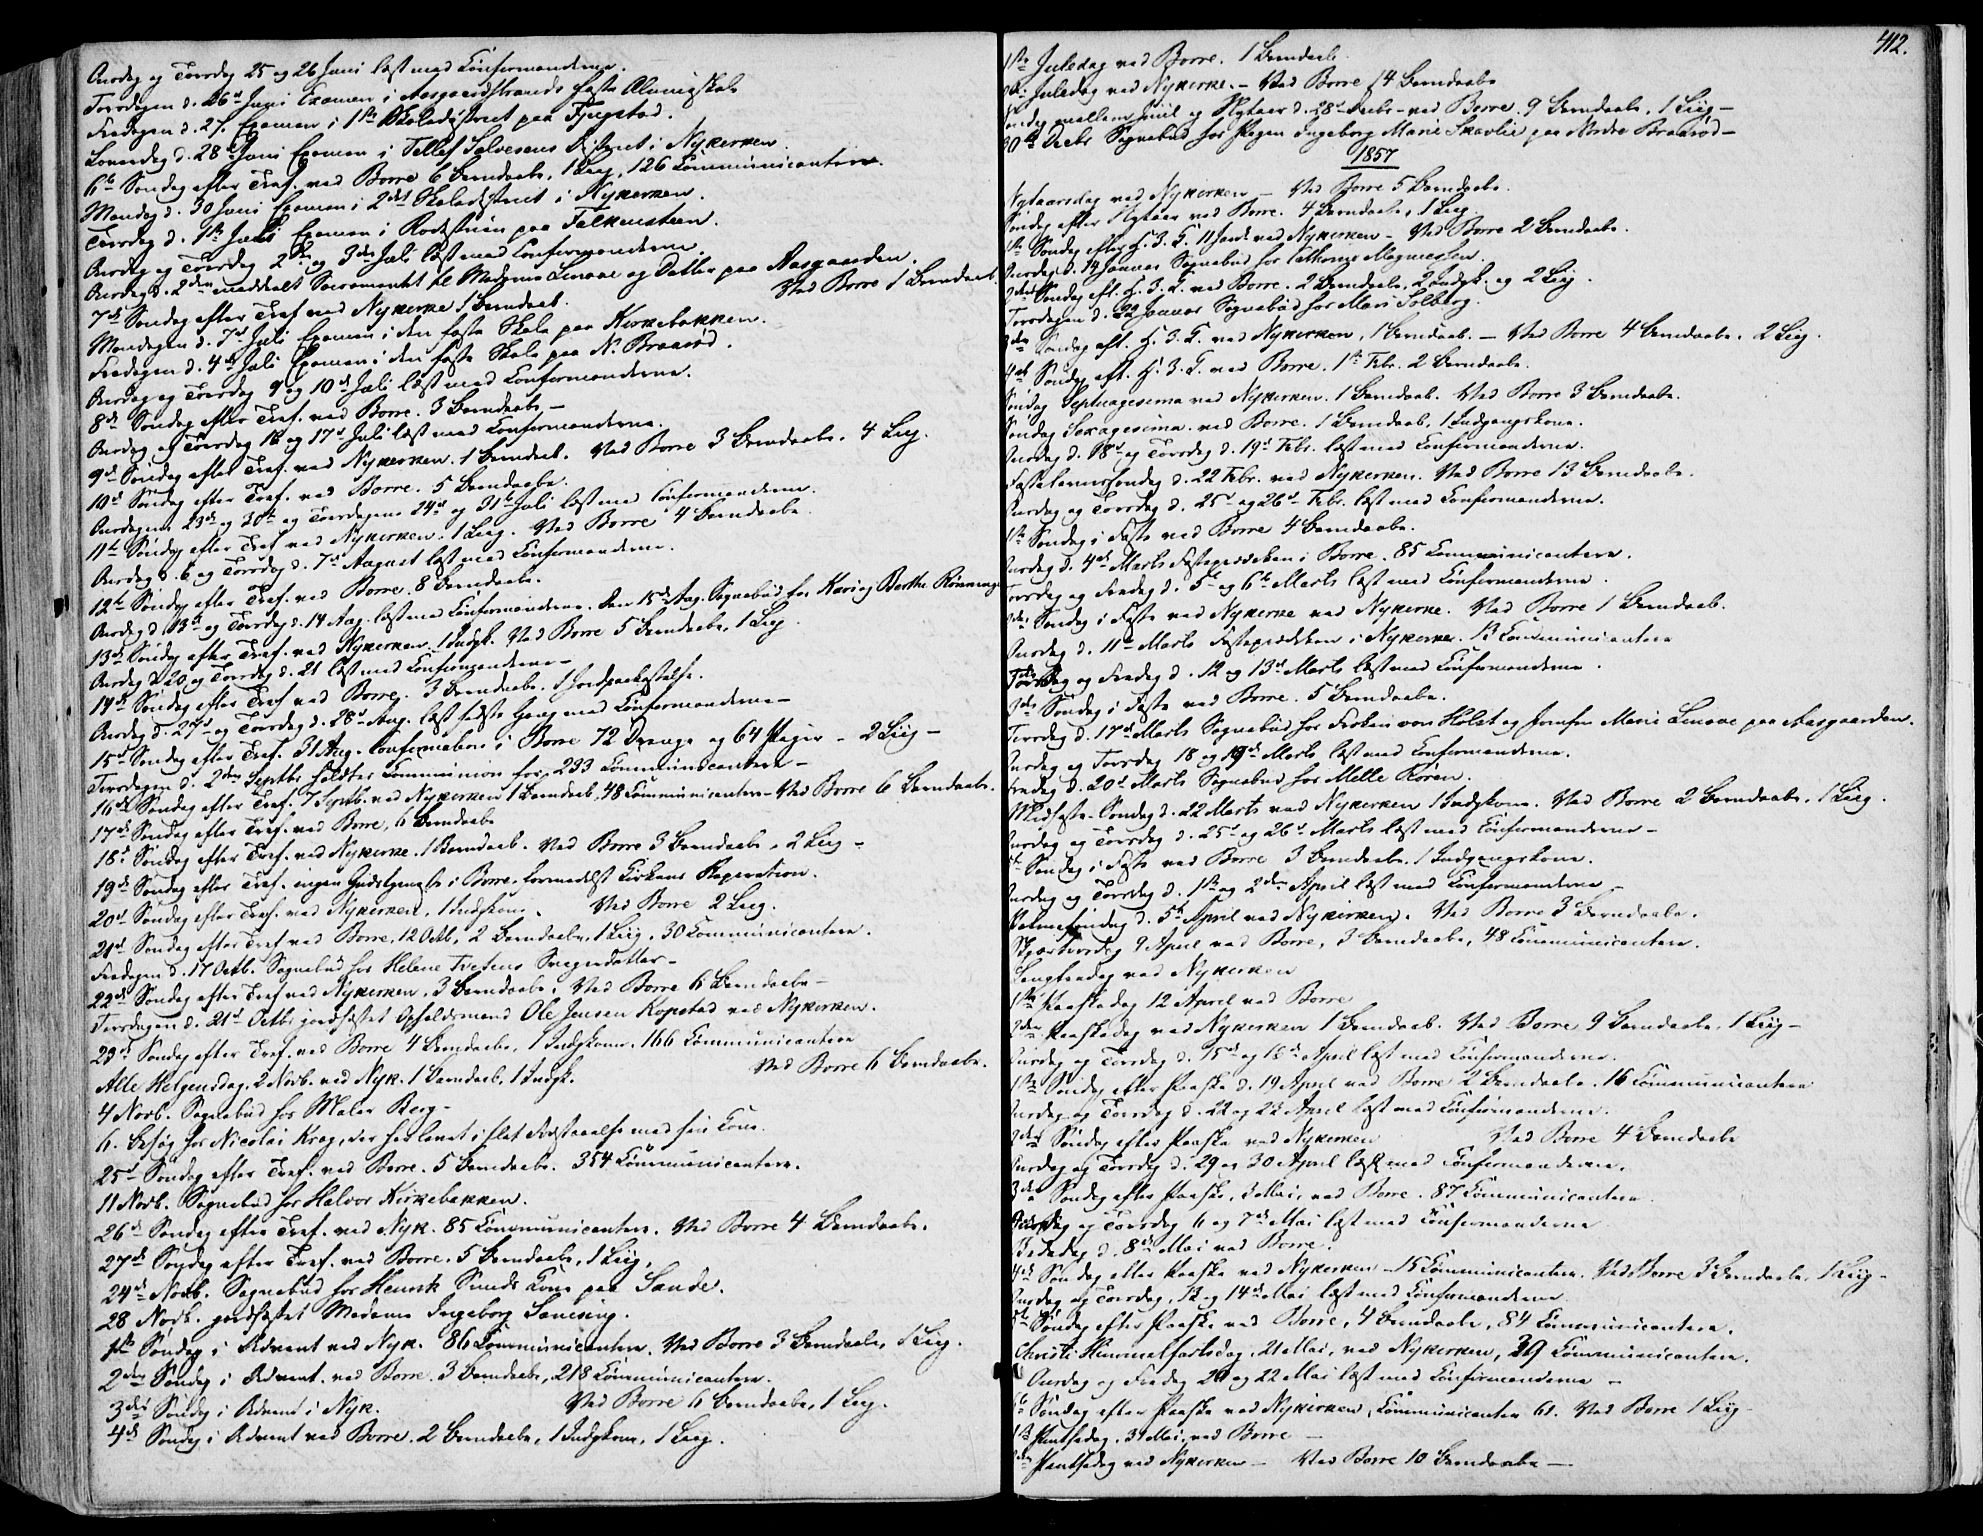 Onsdag og Torsdag 25 og 26 Juni læst med Confirmanderne.
Torsdagen d. 26d Juni Examen i Aasgaardstrands faste Almueskole
Fredagen d. 27. Examen i 1ste Skoledistrict paa Fyugstad.
Løverdag d. 28d Juni Examen i Tellef Salvesens District i Nykirken
6te Søndag efter Tref. ved Borre 6 Barndaabe, 1 Liig, 126 Communicantere.
Mandag d. 30 Juni Examen i 2det Skoledistrict i Nykirken.
Tirsdag d. 1ste Juli Examen i paa Falkensteen.
Onsdag og Torsdag 2den og 3die Juli læst med Confirmanderne.
Onsdag d. 2den meddeelt Sacramentet til Madame Linaae og Datter paa Aasgaarden.
7de Søndag efter Tref. ved Nykirke 1 Barndaab. Ved Borre 1 Barndaab.
Mandagen d. 7d Juli Examen i den faste Skole paa Kirkebakken.
Fredagen d. 4de Juli Examen i den faste Skole paa N. Braarød.
Onsdag og Torsdag 9 og 10d Juli læst med Confirmanderne.
8de Søndag efter Tref. ved Borre. 3 Barndaabe –
Onsdag og Torsdag 16 og 17d Juli læst med Confirmanderne.
9de Søndag efter Tref. ved Nykirken. 1 Barndaab. Ved Borre 3 Barndaabe. 4 Liig.
10de Søndag efter Tref. ved Borre. 5 Barndaabe.
Onsdagene 23de og 30te og Torsdagene 24de og 31te Juli læst med Confirmanderne.
11te Søndag efter Tref. ved Nykirken. 1 Liig. Ved Borre 4 Barndaabe
Onsdag d. 6 og Torsdag d. 7de August læst med Confirmanderne.
12te Søndag efter Tref. ved Borre. 8 Barndaabe.
Onsdag d. 13de og Torsdag d. 14 Aug. læst med Confirmanderne. Den 15de Aug. Sognebud for Kari og Berthe Rønninge
13de Søndag efter Tref. ved Nykirken. 1 Indgk. Ved Borre 5 Barndaabe, 1 Liig.
Onsdag d. 20 og Torsdag d. 21 læst med Confirmanderne –
14de Søndag efter Tref. ved Borre. 3 Barndaabe. 1 Jordpaakastelse.
Onsdag d. 27d og Torsdag d. 28de Aug. læst sidste Gang med Confirmanderne –
15de Søndag efter Tref. 31 Aug. Confirmation i Borre 72 Drenge og 64 Piger – 2 Liig –
Tirsdagen d. 2den Septbr. holdtes Communion for 233 Communicantere –
16de Søndag efter Tref. 7 Septb. ved Nykirken 1 Barndaab, 48 Communicantere – Ved Borre 6 Barndaabe.
17de Søndag efter Tref. ved Borre, 6 Barndaabe
18de Søndag efter Tref. ved Nykirke. 1 Barndaab. Ved Borre 3 Barndaabe, 2 Liig –
19de Søndag efter Tref. ingen Gudstjeneste i Borre, formedelst Kirkens Reperation.
20de Søndag efter Tref. ved Nykirken, 1 Indgkone. Ved Borre 2 Liig.
21de Søndag efter Tref. ved Borre, 12 Octb, 2 Barndaabe, 1 Liig, 30 Communicantere.
Fredagen d. 17 Octb. Sognebud for Helene Tvetens Svigerdatter –
22de Søndag efter Tref. ved Nykirken, 3 Barndaabe. Ved Borre 6 Barndaabe –
Tirsdagen d. 21d Octbr jordfæstet Opholdsmand Ole Jensen Kopstad ved Nykirken.
23de Søndag efter Tref. ved Borre 4 Barndaabe, 1 Indgkone, 166 Communicantere
Alle Helgensdag, 2 Novb. ved Nyk. 1 Barndaab, 1 Indgk. Ved Borre 6 Barndaabe.
4 Novb. Sognebud for Maler Berg –
6. Besøg for Nicolai Krog, der har levet i slet Forstaaelse med sin Kone.
25de Søndag efter Tref. ved Borre. 5 Barndaabe. 354 Communicantere.
11 Novb. Sognebud for Halvor Kirkebakken.
26de Søndag efter Tref. ved Nyk. 85 Communicantere. Ved Borre 4 Barndaabe.
27de Søndag efter Tref. ved Borre. 5 Barndaabe, 1 Liig.
24de Novb. Sognebud for Henrik Sunds Kone paa Sande.
28 Novb. jordfæstet Madame Ingeborg
1ste Søndag i Advent ved Nyk. 86 Communicantere. Ved Borre 3 Barndaabe, 1 Liig.
2den Søndag i Advent. ved Borre. 3 Barndaabe, 218 Communicantere.
3die Søndag i Advent i Nyk. Ved Borre 6 Barndaabe, 1 Liig.
4de Søndag i Advent ved Borre. 2 Barndaabe, 1 Indgkone, 1 Liig.
412.
1ste Juledag ved Borre. 1 Barndaab.
Juledag ved Nykirke. – Ved Borre 14 Barndaabe
Søndag mellem Juul og Nytaar d. 28d Decbr – ved Borre. 9 Barndaabe, 1 Liig –
30te Decbr Sognebud for Pigen Ingeborg Marie Skavlie paa Nordre Braarød –
1857
Nytaarsdag ved Nykirken – Ved Borre 5 Barndaabe.
Søndag efter Nytaar ved Borre. 4 Barndaabe, 1 Liig.
1ste Søndag efter H. 3. K. 11 Janr ved Nykirken – Ved Borre 2 Barndaabe.
Onsdag d. 14 Januar Sognebud for Magnussen.
2den Søndag eft. H. 3. K. ved Borre. 2 Barndaabe, 2 Indgk. og 2 Liig.
Torsdagen d. 22 Januar Sognebud for Mari Solberg.
3die Søndag eft. H. 3. K. ved Nykirken, 1 Barndaab. – Ved Borre 4 Barndaabe. 2 Liig.
4de Søndag eft. H. 3. K. ved Borre. 1ste Febr. 2 Barndaabe.
Søndag Septuagesima ved Nykirken. 1 Barndaab. Ved Borre 3 Barndaabe.
Søndag Sexagesima. ved Borre. 1 Barndaab, 1 Indgangskone.
Onsdag d. 18d og Torsdag d. 19d Febr. læst med Confirmanderne.
Fastelavnssøndag d. 22 Febr. ved Nykirken. Ved Borre 13 Barndaabe.
Onsdag og Torsdag d. 25d og 26d Febr. læst med Confirmanderne.
1ste Søndag i Faste ved Borre 4 Barndaabe.
Onsdag d. 4de Marts Fasteprædiken i Borre. 85 Communicantere.
Torsdag og Fredag d. 5te og 6te Marts læst med Confirmanderne.
Søndag i Faste ved Nykirke ved Nykirke. Ved Borre 1 Barndaab.
Onsdag d. 11te Marts Fasteprædiken i Nykirke. 13 Communicantere
Torsdag og Fredag d. 12 og 13de Marts læst med Confirmanderne.
3die Søndag i Faste ved Borre. 5 Barndaabe.
Tirsdag d. 17d Marts Sognebud for Frøken von Holst og Jomfru Marie Linaae paa Aasgaarden.
Onsdag og Torsdag 18 og 19de Marts læst med Confirmanderne.
Fredag d. 20d Marts Sognebud for Melle Røren.
Midfaste-Søndag d. 22 Marts ved Nykirken 1 Indgkone. Ved Borre 2 Barndaabe. 1 Liig.
Onsdag og Torsdag d. 25d og 26d Marts læst med Confirmanderne –
5te Søndag i Faste ved Borre 3 Barndaabe, 1 Indgangskone.
Onsdag og Torsdag d. 1ste og 2den April læst med Confirmanderne –
Palmesøndag d. 5te April ved Nykirken. Ved Borre 3 Barndaabe.
Skjærtorsdag 9 April ved Borre, 3 Barndaabe, 48 Communicantere.
Langfredag ved Nykirken
1ste Paaskedag 12 April ved Borre
2den Paaskedag ved Nykirken 1 Barndaab. Ved Borre 9 Barndaabe. 1 Liig –
Onsdag og Torsdag d. 15de og 16de April læst med Confirmanderne.
1ste Søndag efter Paaske d. 19 April ved Borre 2 Barndaabe. 16 Communicantere
Onsdag og Torsdag d. 22 og 23 April læst med Confirmanderne.
2den Søndag efter Paaske ved Nykirken Ved Borre 4 Barndaabe
Onsdag og Torsdag d. 29 og 30 April læst med Confirmanderne.
3die Søndag efter Paaske, 3 Mai, ved Borre. 87 Communicantere
Onsdag og Torsdag 6 og 7de Mai læst med Confirmanderne
Bededag d. 8de Mai ved Borre.
4de Søndag efter Paaske ved Nykirken – 15 Communicantere. Ved Borre 3 Barndaabe, 1 Liig –
Onsdag og Torsdag, 13 og 14de Mai læst med Confirmanderne.
5te Søndag efter Paaske ved Borre, 4 Barndaabe, 84 Communicantere.
Christi Himmelfartsdag. 21 Mai, ved Nykirken, 39 Communicantere.
Onsdag og Fredag 20 og 22 Mai læst med Confirmanderne –
6te Søndag efter Paaske ved Nykirken, Communicanter 61. Ved Borre 1 Liig
1ste Pintsedag. 31 Mai, ved Borre –
2den Pintsedag ved Nykirken – Ved Borre 10 Barndaabe –